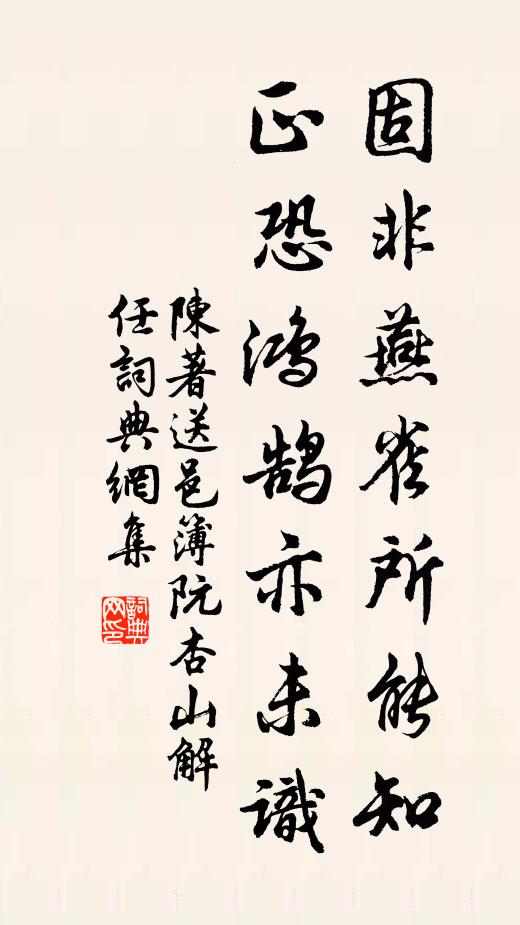 固非燕雀所能知
正恐鴻鵠亦未識
陳著送邑簿阮杏山解
任詞典網集
詞典
网印